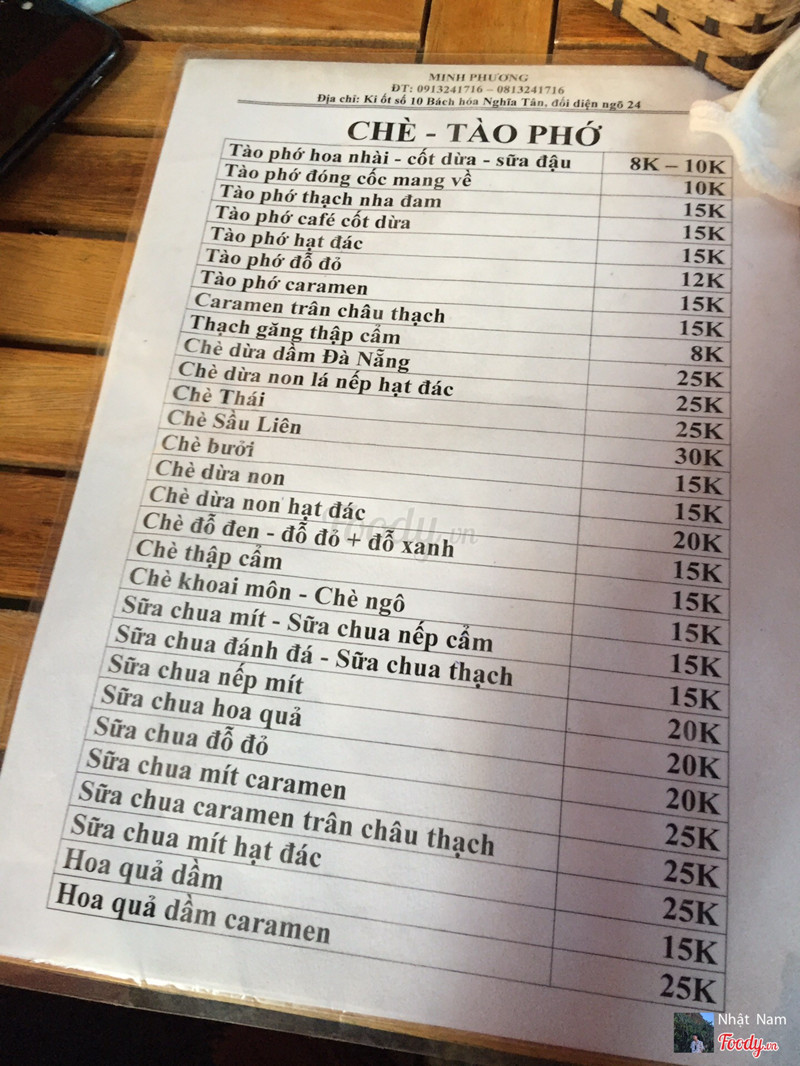 MINH PHƯƠNG
ĐT: 0913241716 – 0813241716
Địa chỉ: Ki ốt số 10 Bách hóa Nghĩa Tân, đối diện ngõ 24
CHÈ - TÀO PHỚ
Tào phớ hoa nhài - cốt dừa - sữa đậu 8K – 10K
Tào phớ đóng cốc mang về 10K
Tào phớ thạch nha đam 15K
Tào phớ café cốt dừa 15K
Tào phớ hạt đác 15K
Tào phớ đỗ đỏ 12K
Tào phớ caramen 15K
Caramen trân châu thạch 15K
Thạch găng thập cẩm 8K
Chè dừa dầm Đà Nẵng 25K
Chè dừa non lá nếp hạt đác 25K
Chè Thái 25K
Chè Sầu Liên 30K
Chè bưởi 15K
Chè dừa non 15K
Chè dừa non hạt đác 20K
Chè đỗ đen - đỗ đỏ + đỗ xanh 15K
Chè thập cẩm 15K
Chè khoai môn - Chè ngô 15K
Sữa chua mít - Sữa chua nếp cẩm 15K
Sữa chua đánh đá - Sữa chua thạch 15K
Sữa chua nếp mít 20K
Sữa chua hoa quả 20K
Sữa chua đỗ đỏ 20K
Sữa chua mít caramen 25K
Sữa chua caramen trân châu thạch 25K
Sữa chua mít hạt đác 25K
Hoa quả dầm 15K
Hoa quả dầm caramen 25K
foody.vn
Nhật Nam
Foody.vn